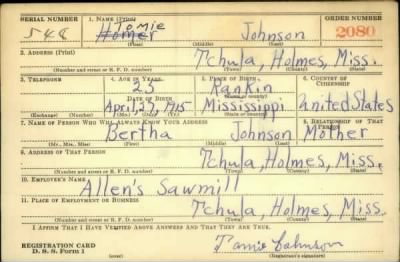 SERIAL NUMBER 1. NAME (Print) ORDER NUMBER
548 Homer Tomie Johnson 2080
(First) (Middle) (Last)
2. ADDRESS (Print)
Tchula, Holmes, Miss.
(Number and street or R. F. D. number) (Town) (County) (State)
3. TELEPHONE 4. AGE IN YEARS 5. PLACE OF BIRTH 6. COUNTRY OF CITIZENSHIP
23 Rankin
DATE OF BIRTH (Town or county)
April, 27, 1915 Mississippi United States
(Exchange) (Number) (Mo.) (Day) (Yr.) (State or country)
7. NAME OF PERSON WHO WILL ALWAYS KNOW YOUR ADDRESS 8. RELATIONSHIP OF THAT PERSON
Bertha Johnson Mother
(Mr., Mrs., Miss) (First) (Middle) (Last)
9. ADDRESS OF THAT PERSON
Tchula, Holmes, Miss.
(Number and street or R. F. D. number) (Town) (County) (State)
10. EMPLOYER'S NAME
Allen's Sawmill
11. PLACE OF EMPLOYMENT OR BUSINESS
Tchula, Holmes, Miss.
(Number and street or R. F. D. number) (Town) (County) (State)
I AFFIRM THAT I HAVE VERIFIED ABOVE ANSWERS AND THAT THEY ARE TRUE.
REGISTRATION CARD
D. S. S. Form 1 (Registrant's signature)